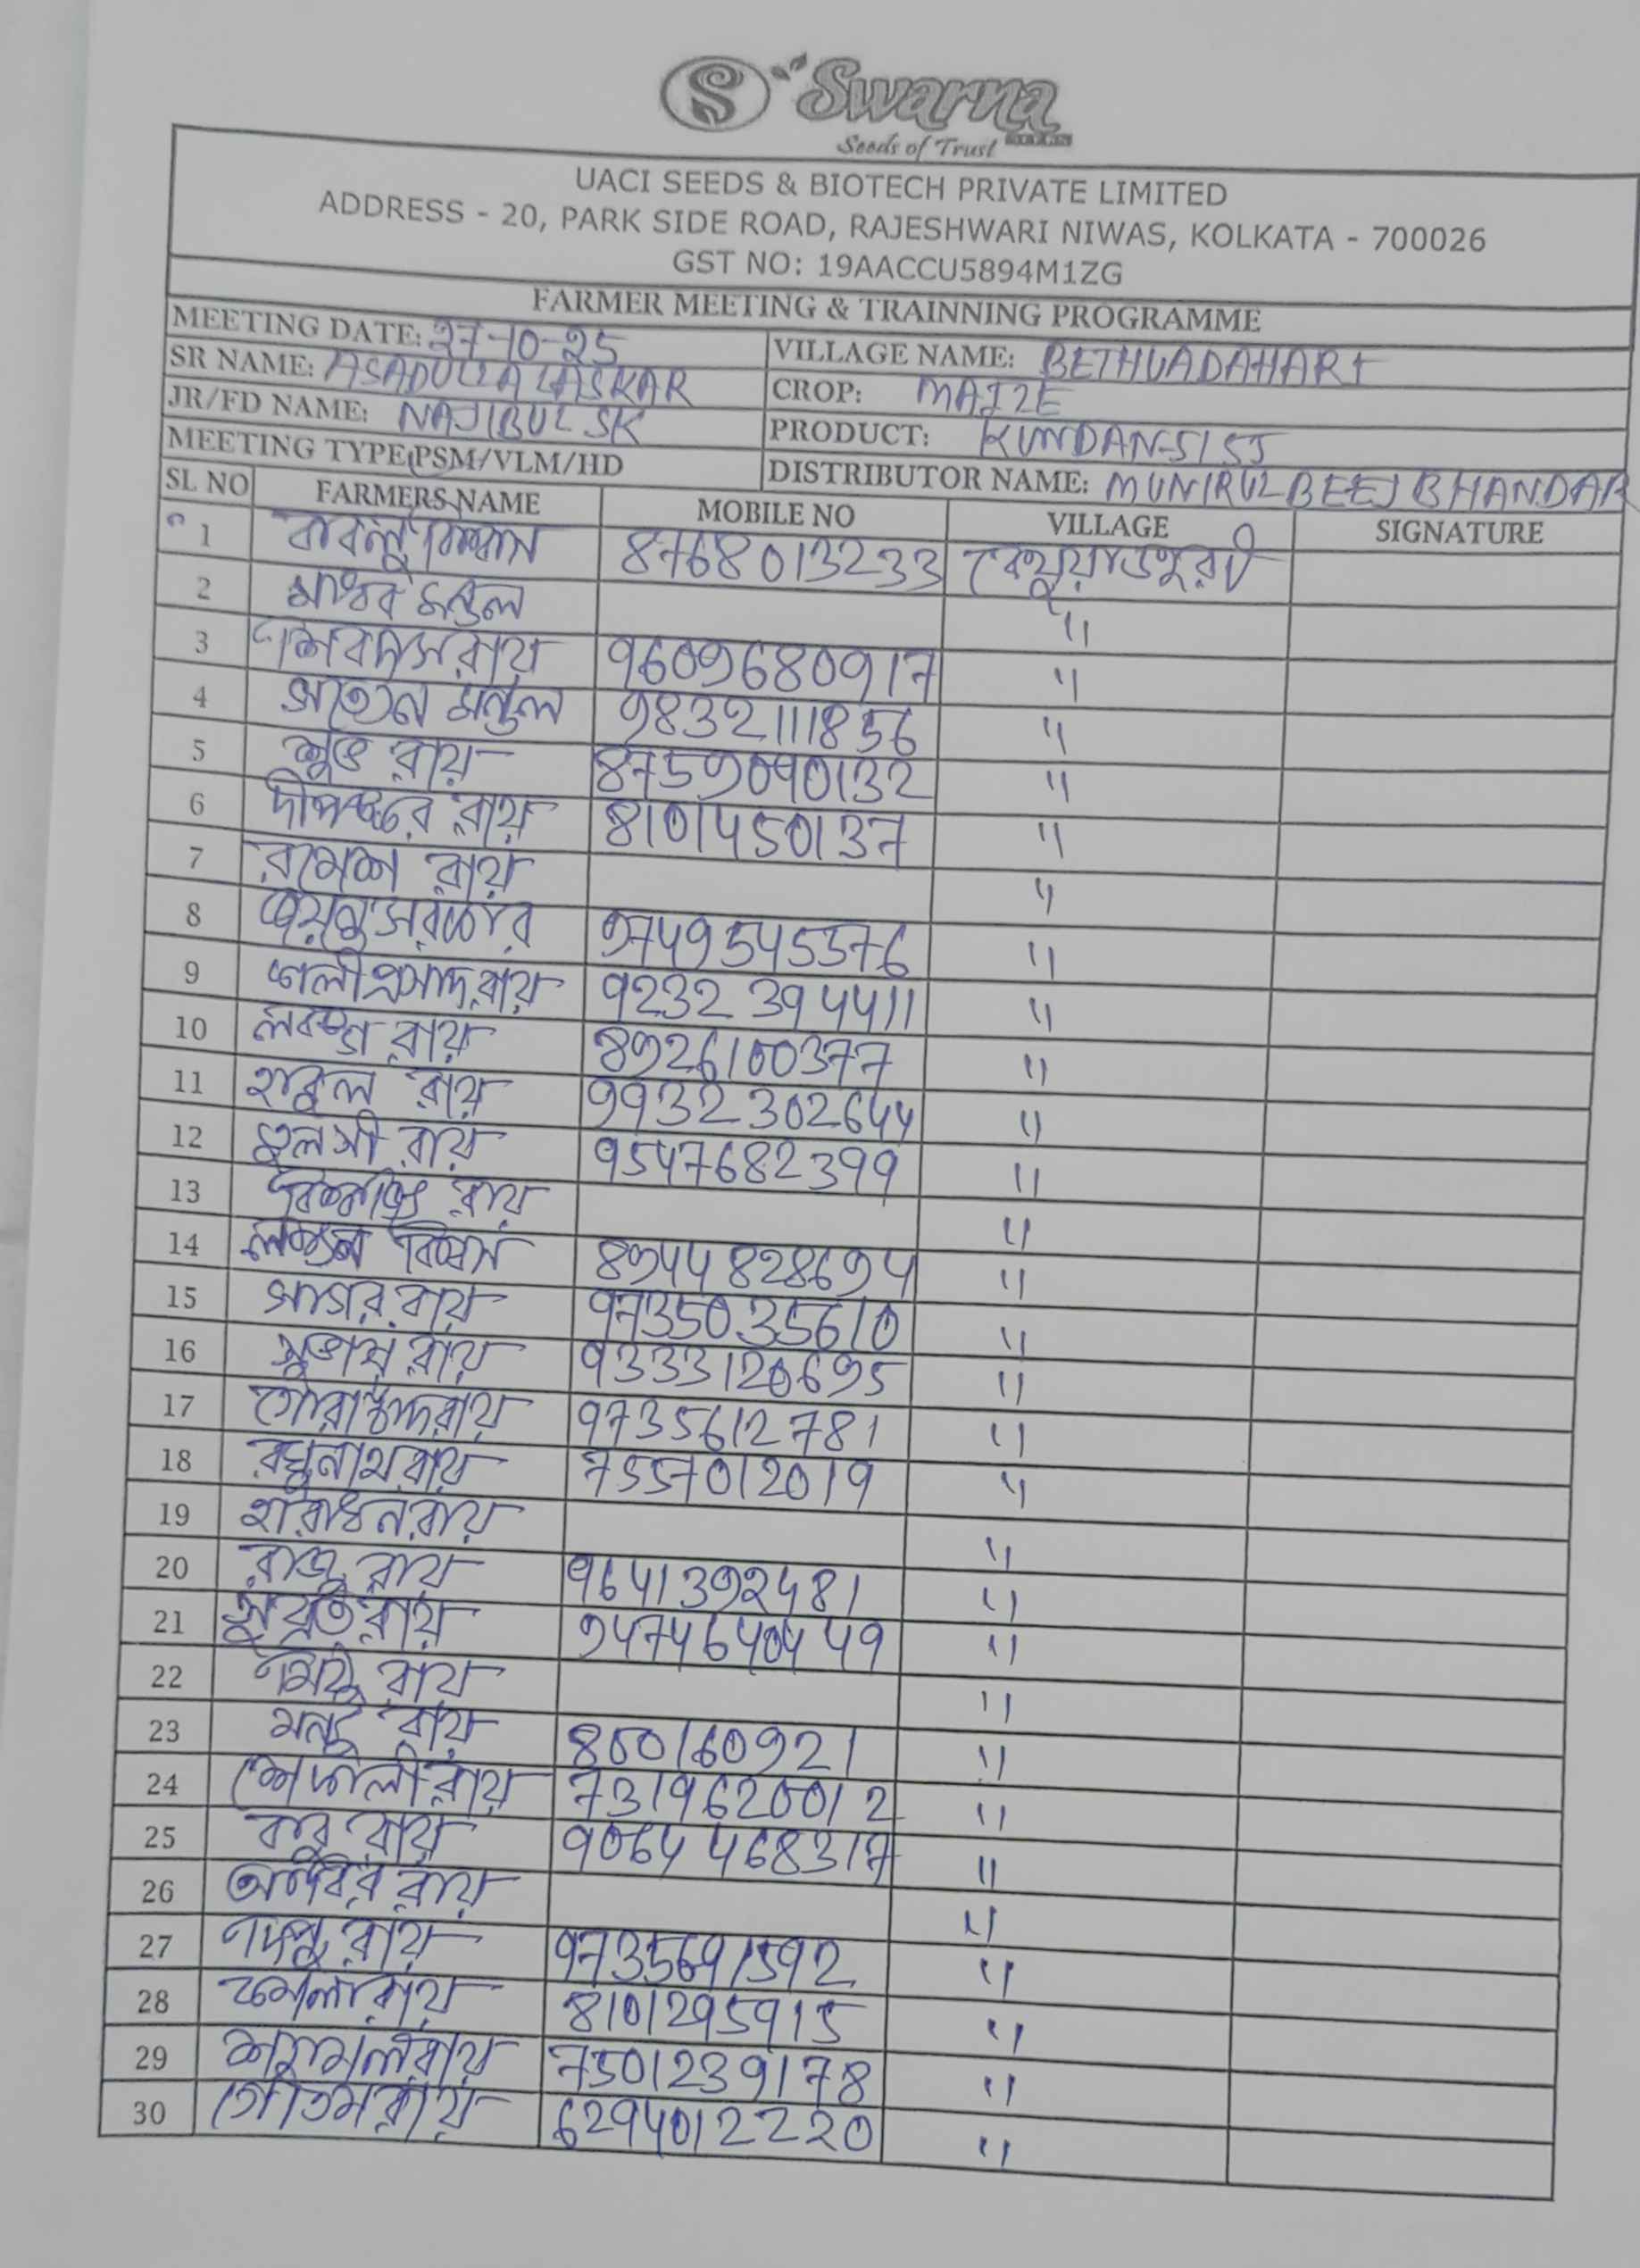 Swarna
Seeds of Trust
UACI SEEDS & BIOTECH PRIVATE LIMITED
ADDRESS - 20, PARK SIDE ROAD, RAJESHWARI NIWAS, KOLKATA - 700026
GST NO: 19AACCU5894M1ZG
FARMER MEETING & TRAINNING PROGRAMME
MEETING DATE: 27-10-25 VILLAGE NAME: BETHUADAHARI
SR NAME: ASADULLA LASKAR CROP: MAIZE
JR/FD NAME: NAJIBUL SK PRODUCT: KUNDAN-5155
MEETING TYPE PSM/VLM/HD DISTRIBUTOR NAME: MUNIRUL BEEJ BHANDAR
SL NO FARMERS NAME MOBILE NO VILLAGE SIGNATURE
1 বাবলু বিশ্বাস 8768013233
2 মাধব মন্ডল "
3 শিবদাস রায় 9609680917 "
4 সতেন মন্ডল 9832111856 "
5 শুভ রায় 8759090132 "
6 দীপঙ্কর রায় 8101450137 "
7 রমেশ রায় "
8 সরকার 9749545576 "
9 কালীপ্রসাদ রায় 9232394411 "
10 রায় 8926100377 "
11 রায় 9932302644 "
12 তুলসী রায় 9547682399 "
13 রায় "
14 বিশ্বাস 8944828694 "
15 সাগর রায় 9735035610 "
16 সুভাষ রায় 9333120695 "
17 গোরাচাঁদ রায় 9735612781 "
18 রঘুনাথ রায় 7557012019 "
19 হারাধন রায় "
20 রাজু রায় 9641392481 "
21 সুব্রত রায় 9474640449 "
22 রায় "
23 মন্টু রায় 850160921 "
24 শেফালী রায় 7319620012 "
25 বাবু রায় 9064468317 "
26 রায় "
27 রায় 9735691592 "
28 রায় 8101295915 "
29 শ্যামল রায় 7501239178 "
30 গৌতম রায় 6294012220 "